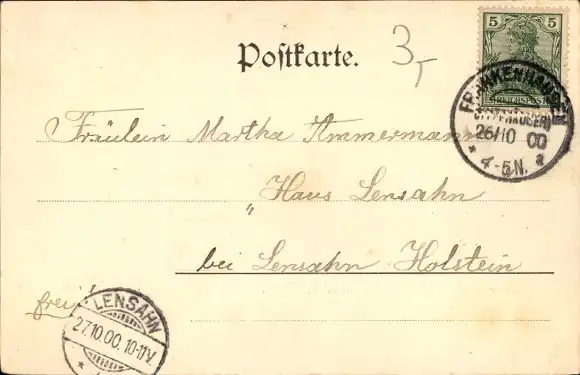 Postkarte.
3
5 5
REICHSPOST
FRANKENHAUSEN
(KYFFHÄUSER)
26/10 00
* 4-5N. a
Fräulein Martha Ammermann
" Haus Lensahn
bei Lensahn Holstein
frei!
LENSAHN
27.10.00.10-11V.